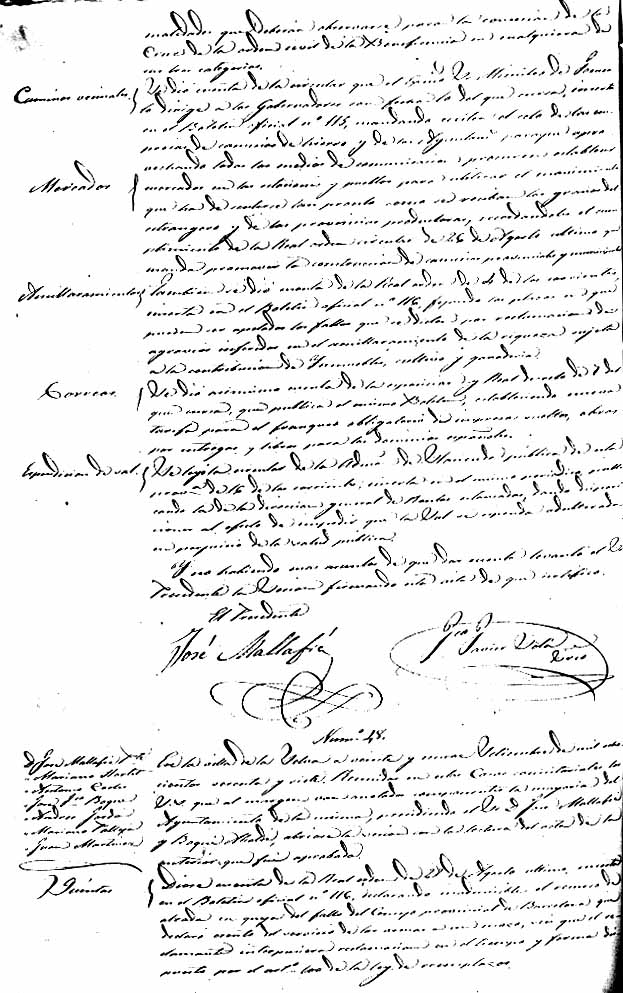 malidades que deberán observarse para la concesión de la
Cruz de la orden civil de la Beneficencia en cualquiera de
sus tres categorias.
Caminos vecinales. Se dió cuenta de la circular que el Excmo Sr. Ministro de Fomento
dirige a los Gobernadores con fecha 10 del que cursa, inserta
en el Boletin oficial nº 115, mandando exciten el celo de las em-
presas de caminos de hierro y de los Ayuntamientos para que apro-
vechando todos los medios de comunicacion, procuren establecer
Mercados mercados en las estaciones y pueblos para utilizar el movimiento
que ha de haber tan pronto como se reciban los granos del
estrangero y de las provincias productoras, recordandoles el cum-
plimiento de la Real orden circular de 26 de Agosto ultimo que
manda promover la construccion de caminos provinciales y municipales
Amillaramientos Tambien se dió cuenta de la Real orden de 4 de los corrientes,
inserta en el Boletin oficial nº 116, fijando los plazos en que
pueden ser apelados los fallos que se dicten por reclamaciones de
agravios inferidos en el amillaramiento de la riqueza sujeta
a la contribucion de Inmuebles, cultivo y ganaderia.
Correos. Se dió asimismo cuenta de la esposicion y Real decreto de 7 del
que cursa, que publica el mismo Boletin, estableciendo nueva
tarifa para el franqueo obligatorio de impresos sueltos, obras
por entregas, y libros para los dominios españoles.
Espendicion de sal. Se leyó la circular de la Admon de Hacienda publica de esta
de 16 de los corrientes, inserta en el mismo periodico, publi-
cando la de la direccion general de Rentas estancadas, dando disposi-
ciones al efecto de impedir que la Sal se espenda adulterada
en perjuicio de la salud publica.
Y no habiendo mas asuntos de que dar cuenta levantó el Sr.
Presidente la Sesion firmando esta acta de que certifico.
El Presidente
José Mallafré
Javier
Srio
Num.º 48.
D. José Mallafré Pte
Mariano
Antonio
José Fco Boqué
Andres Jordá
Mariano
Juan Martinez
En la villa de la Selva a veinte y nueve Setiembre de mil ocho-
cientos sesenta y siete. Reunidos en estas Casas consistoriales los
S.S. que al margen van anotados componentes la mayoria del
Ayuntamiento de la misma, presidiendo el Sr. D. José Mallafré
y Boqué Alcalde, abriose la sesion con la lectura del acta de la
anterior que fué aprobada.
Quintas Diose cuenta de la Real orden de 28 de Agosto ultimo, inserta
en el Boletin oficial nº 116, declarando el recurso de
alzada en queja del fallo del Consejo provincial de Barcelona que
declaró exento del servicio de las armas a un mozo, sin que el re-
clamante interpusiera reclamacion en el tiempo y forma dis-
puesta por el artº 100 de la ley de reemplazos.